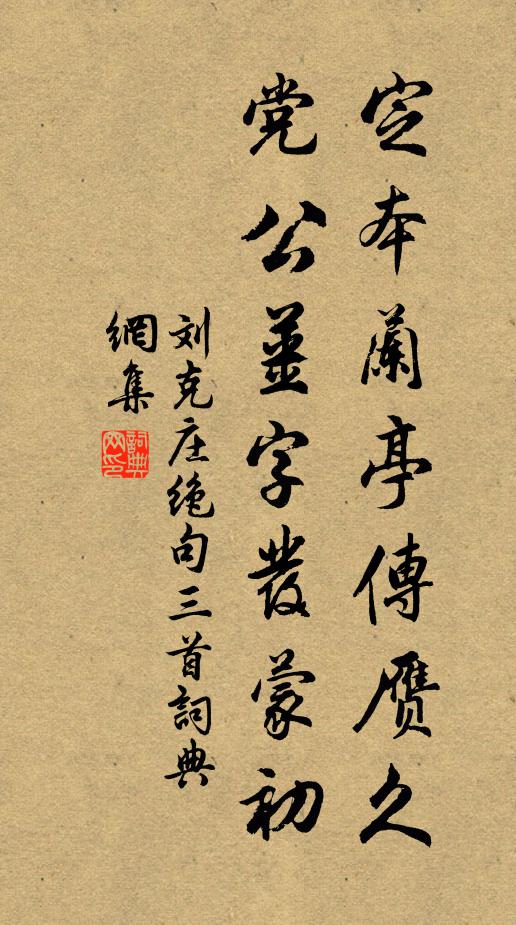 定本蘭亭傳赝久
党公薑字發蒙初
刘克庄绝句三首詞典
網集
詞典
网印